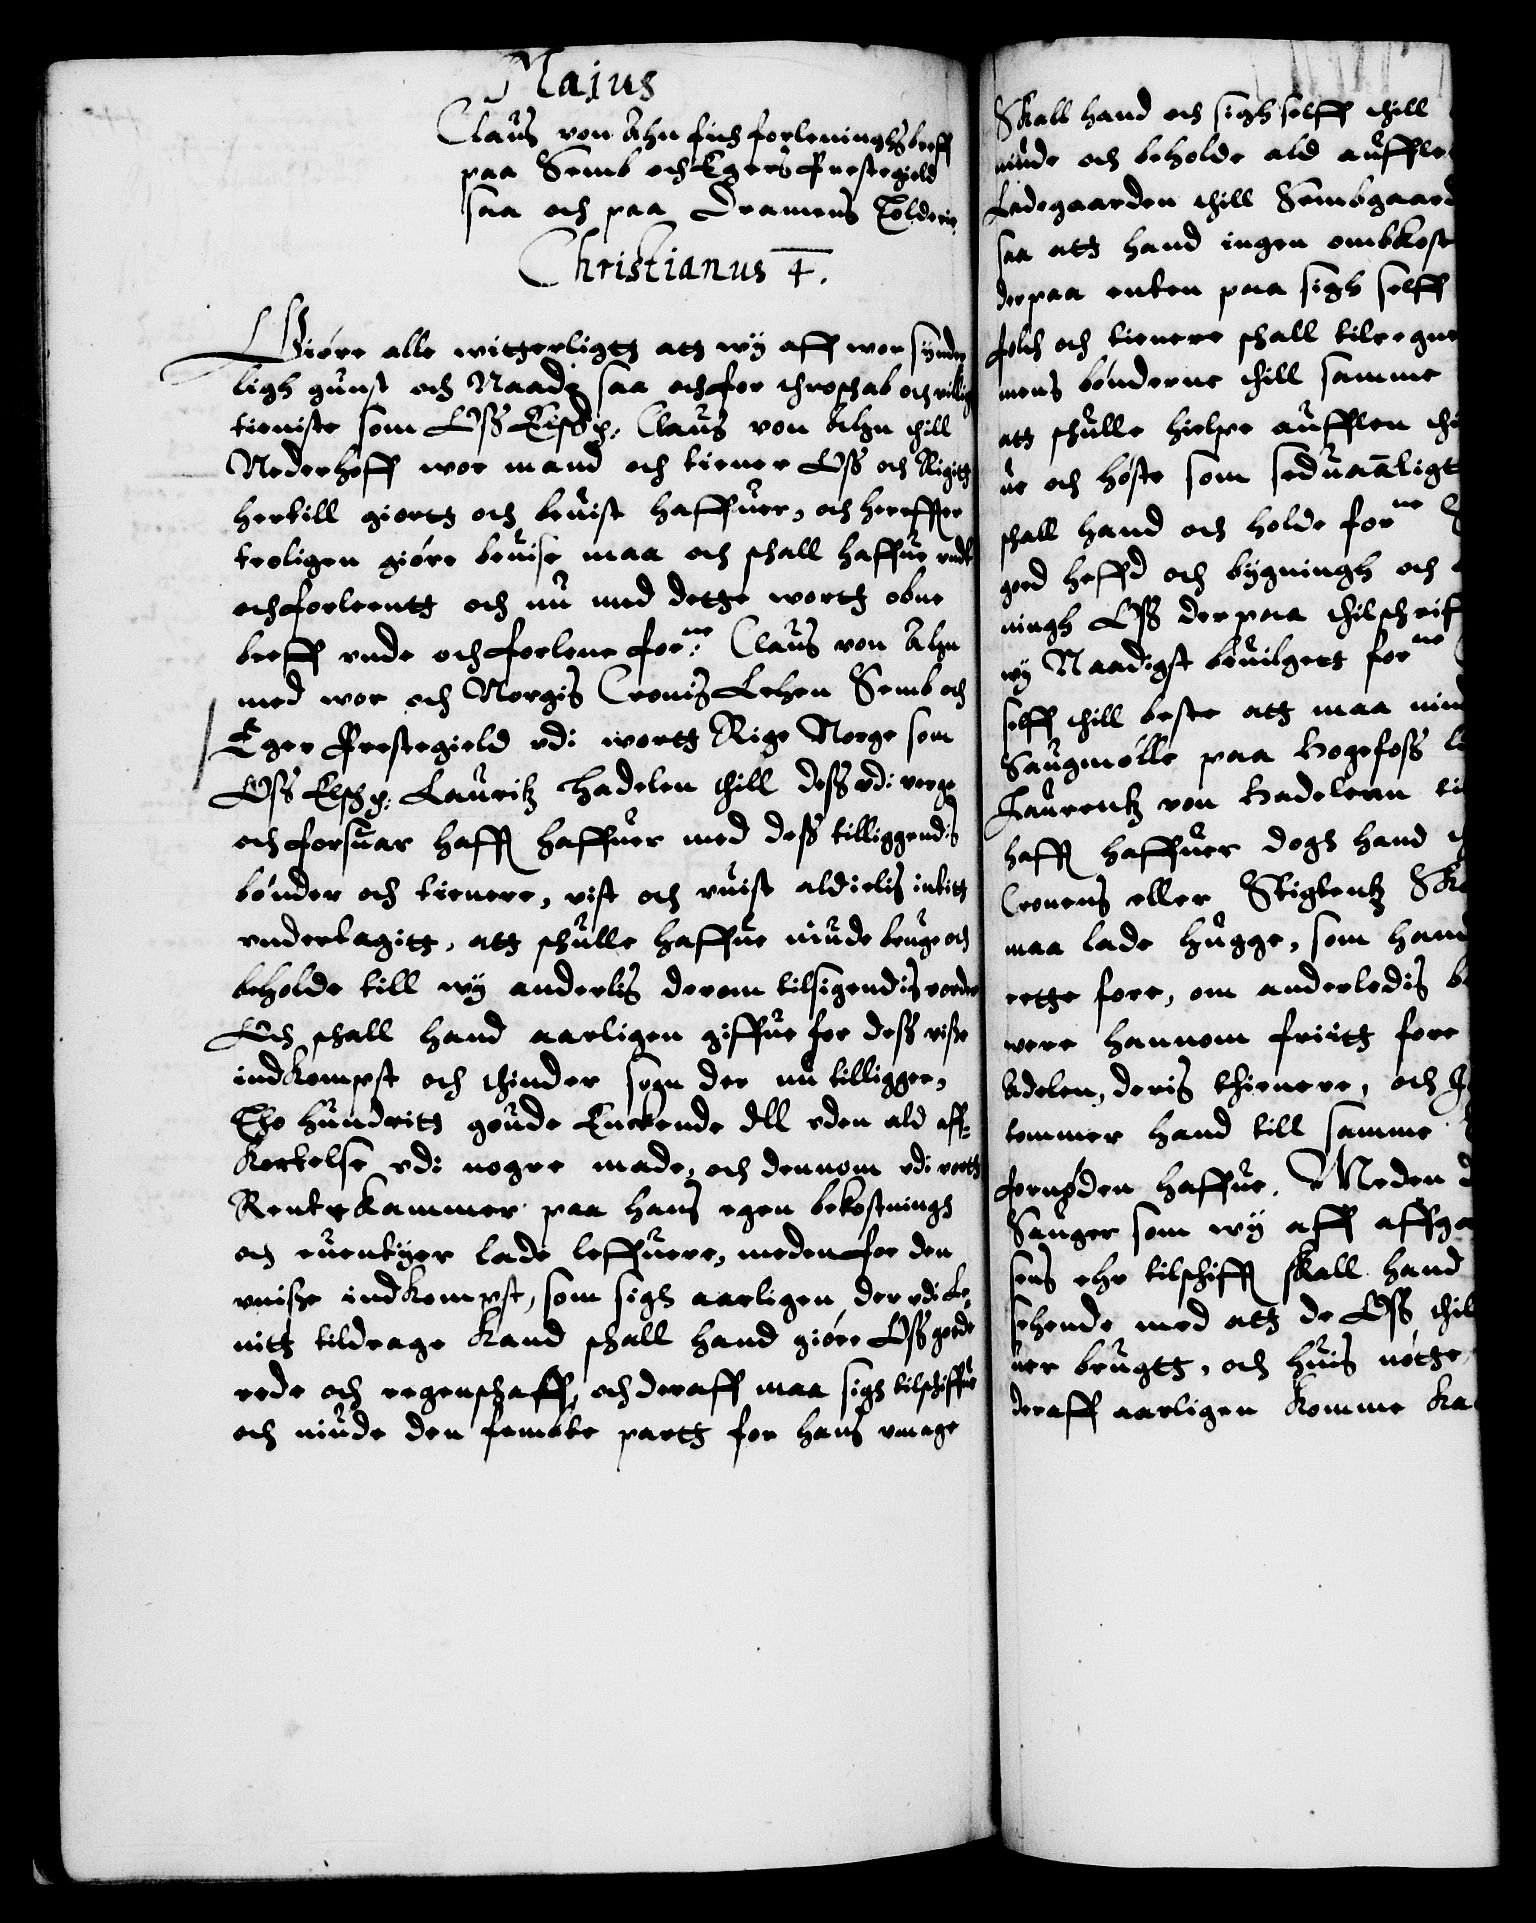 Majus
Claus von Ahn fich forleninghsbreff
paa Semb och Egers Prestegield
saa och paa Dramens Tolderie
Christianus 4.
Giöre alle witterligtt att wij aff wor synder
ligh gunst och Naade saa och for throschab och villig
tieniste som Oss Elsch: Claus von Ahn thill
Nederhoff wor mand och tiener Oss och Rigitt
hertill giortt och beuist haffuer, och hereffter
troligen giöre beuise maa och schall haffue undt
och forleentt och nu med dette wortt obne
breff unde och forlene forne: Claus von Ahn
med wor och Norgis Cronis Lehen Semb och
Eger Prestegield udi wortt Rige Norge som
Oss Elsch: Lauritz Hadelen thill dess udi werge
och forsuar hafft haffuer med dess tilliggendis
bönder och tienere, vist och uuist aldielis intitt
undertagitt, att schulle haffue niude bruge och
beholde till wij anderlis derom tilsigendis vorder
Och schall hand aarligen giffue for dess visse
indkompst och thinder sogn der nu tilligger,
Tho hundritt goude Enckende dll uden ald aff-
kortelse udi nogre made, och dennom udi vortt
Rentekammer paa hans egen bekostningh
och euentyer lade leffuere, meden for den
uuisse indkompst, som sigh aarligen der udi Le-
nitt tildrage kand schall hand giöre Oss goede
rede och regenschaff, och deraff maa sigh tilschiffte
och niude den fembte partt for hans umage
Skall hand och sigh selff thill
niude och beholde ald auffle
Ladegaarden thill Sembgaard
saa att hand ingen ombkost
derpaa enten paa sigh selff
folch och tienere schall tilregne
mens bönderne thill samme
att schulle hielpe aufflen thi
ue och höste som seduaanligt
schall hand och holde forne
goed heffd och bygningh och
ningh Oss derpaa thilschrif
wij Naadigst beuilgett forne
selff thill beste att maa niud
Saugmölle paa Hogefoss
Laurentz von Hadelenn ti
hafft haffuer dogh hand
Cronens eller Stigtentz Sko
maa lade hugge, som hand
rette fore, om anderledis be
were hannom friitt fore
Adelen, deris thienere, och
tommer hand till samme
fornøden haffue. Meden d
Sauger som wij aff affga
sens ehr tilschifft skall hand
sehende med att de Oss thil
uer brugtt, och huis nötte
deraff aarligen komme ka